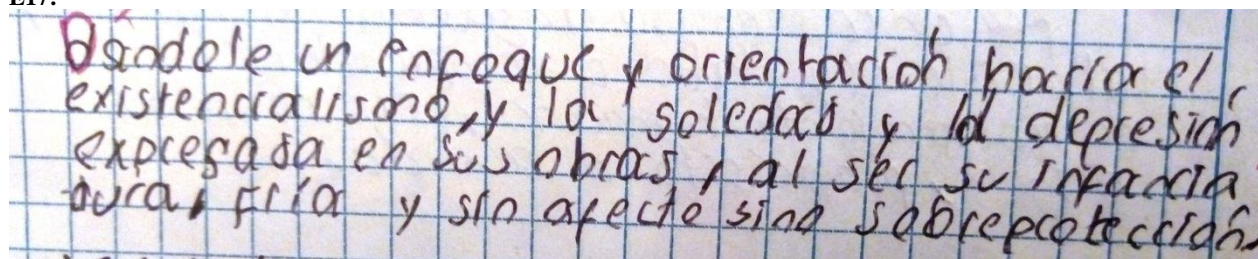 Dándole un enfoque y orientación hacia el
existencialismo, y la soledad y la depresión
expresada en sus obras, al ser su infancia
dura, fría y sin afecto sino sobreprotección.